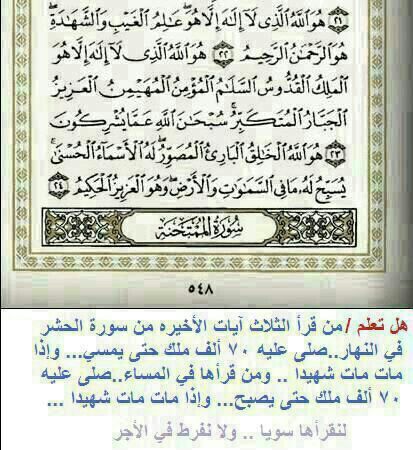 ٢١ هُوَ ٱللَّهُ ٱلَّذِى لَآ إِلَٰهَ إِلَّا هُوَ عَٰلِمُ ٱلْغَيْبِ وَٱلشَّهَٰدَةِ
هُوَ ٱلرَّحْمَٰنُ ٱلرَّحِيمُ ٢٢ هُوَ ٱللَّهُ ٱلَّذِى لَآ إِلَٰهَ إِلَّا هُوَ
ٱلْمَلِكُ ٱلْقُدُّوسُ ٱلسَّلَٰمُ ٱلْمُؤْمِنُ ٱلْمُهَيْمِنُ ٱلْعَزِيزُ
ٱلْجَبَّارُ ٱلْمُتَكَبِّرُ سُبْحَٰنَ ٱللَّهِ عَمَّا يُشْرِكُونَ
٢٣ هُوَ ٱللَّهُ ٱلْخَٰلِقُ ٱلْبَارِئُ ٱلْمُصَوِّرُ لَهُ ٱلْأَسْمَآءُ ٱلْحُسْنَىٰ
يُسَبِّحُ لَهُۥ مَا فِى ٱلسَّمَٰوَٰتِ وَٱلْأَرْضِ وَهُوَ ٱلْعَزِيزُ ٱلْحَكِيمُ ٢٤
سُورَةُ ٱلْمُمْتَحَنَةِ
٥٤٨
هل تعلم / من قرأ الثلاث آيات الأخيره من سورة الحشر
في النهار..صلى عليه ٧٠ ألف ملك حتى يمسي... وإذا
مات مات شهيدا .. ومن قرأها في المساء..صلى عليه
٧٠ ألف ملك حتى يصبح... وإذا مات مات شهيدا ...
لنقرأها سويا .. ولا نفرط في الأجر